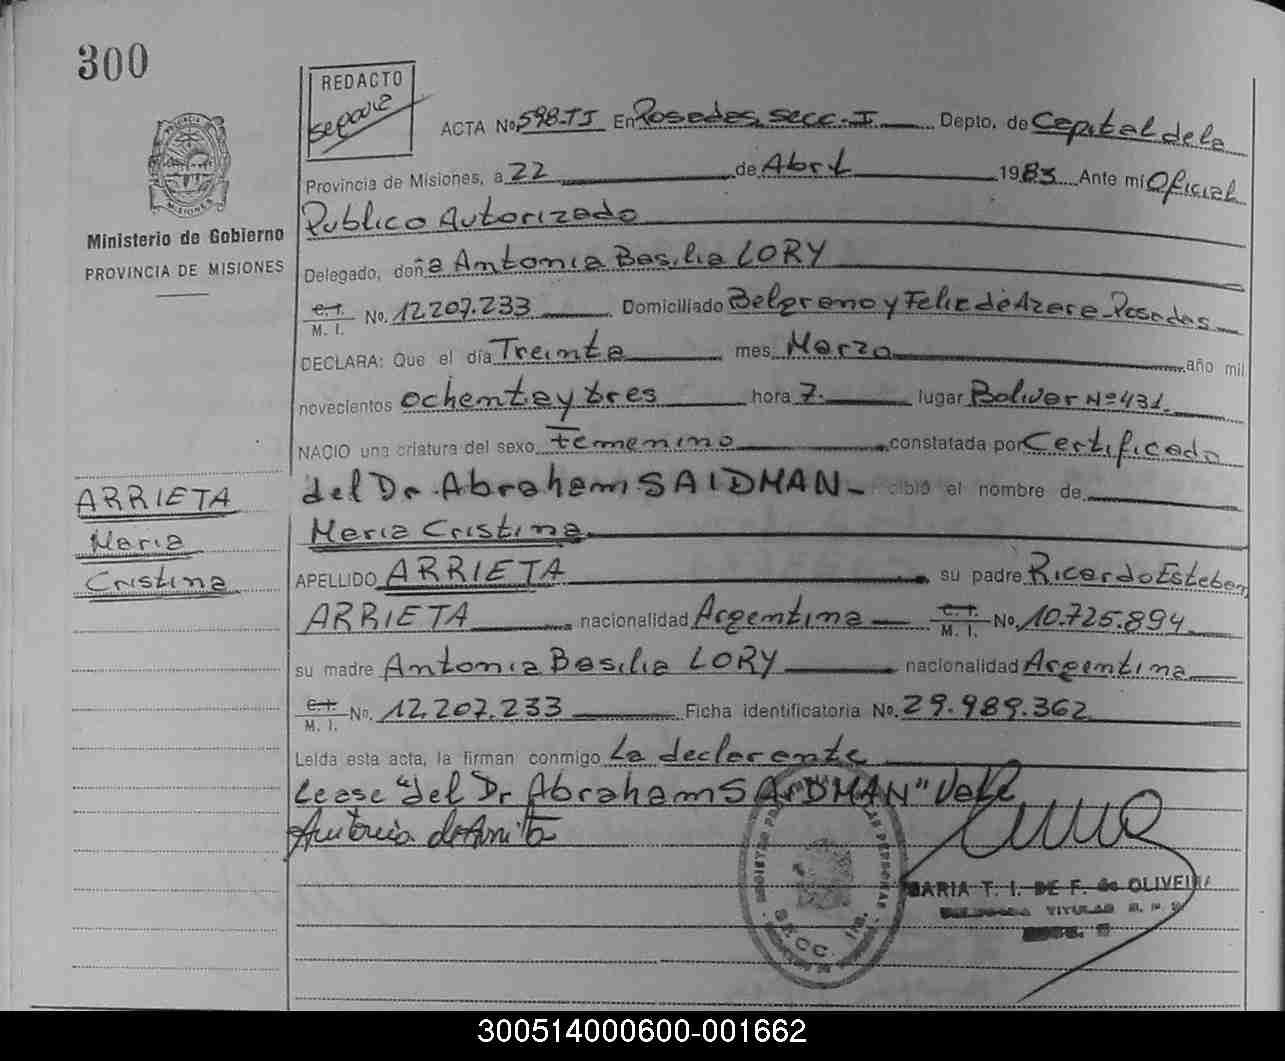 300
REDACTO
ACTA No. 598-TI En Posadas, secc. I Depto. de Capital de la
Provincia de Misiones, a 22 de Abril 1983 Ante mi Oficial
Publico Autorizado
Ministerio de Gobierno
PROVINCIA DE MISIONES
Delegado, doña Antonia Basilia LORY
C. I.
M. I. No. 12.207.233 Domiciliado Belgrano y Felix de Azara Posadas
DECLARA: Que el día Treinta mes Marzo año mil
novecientos ochenta y tres hora 7. lugar Bolivar Nº 431.
NACIO una criatura del sexo femenino constatada por Certificado
del Dr. Abraham SAIDMAN cibió el nombre de
Maria Cristina
ARRIETA
Maria
Cristina
APELLIDO ARRIETA su padre Ricardo Esteban
ARRIETA nacionalidad Argentina C. I.
M. I. No. 10.725.894
su madre Antonia Basilia LORY nacionalidad Argentina
C. I.
M. I. No. 12.207.233 Ficha identificatoria No. 29.989.362
Leída esta acta, la firman conmigo La declarante
Lease "del Dr Abraham SAIDMAN" Vale
MARIA T. I. DE F. de OLIVEIRA
TITULAR
SECC. 1ra.
300514000600-001662